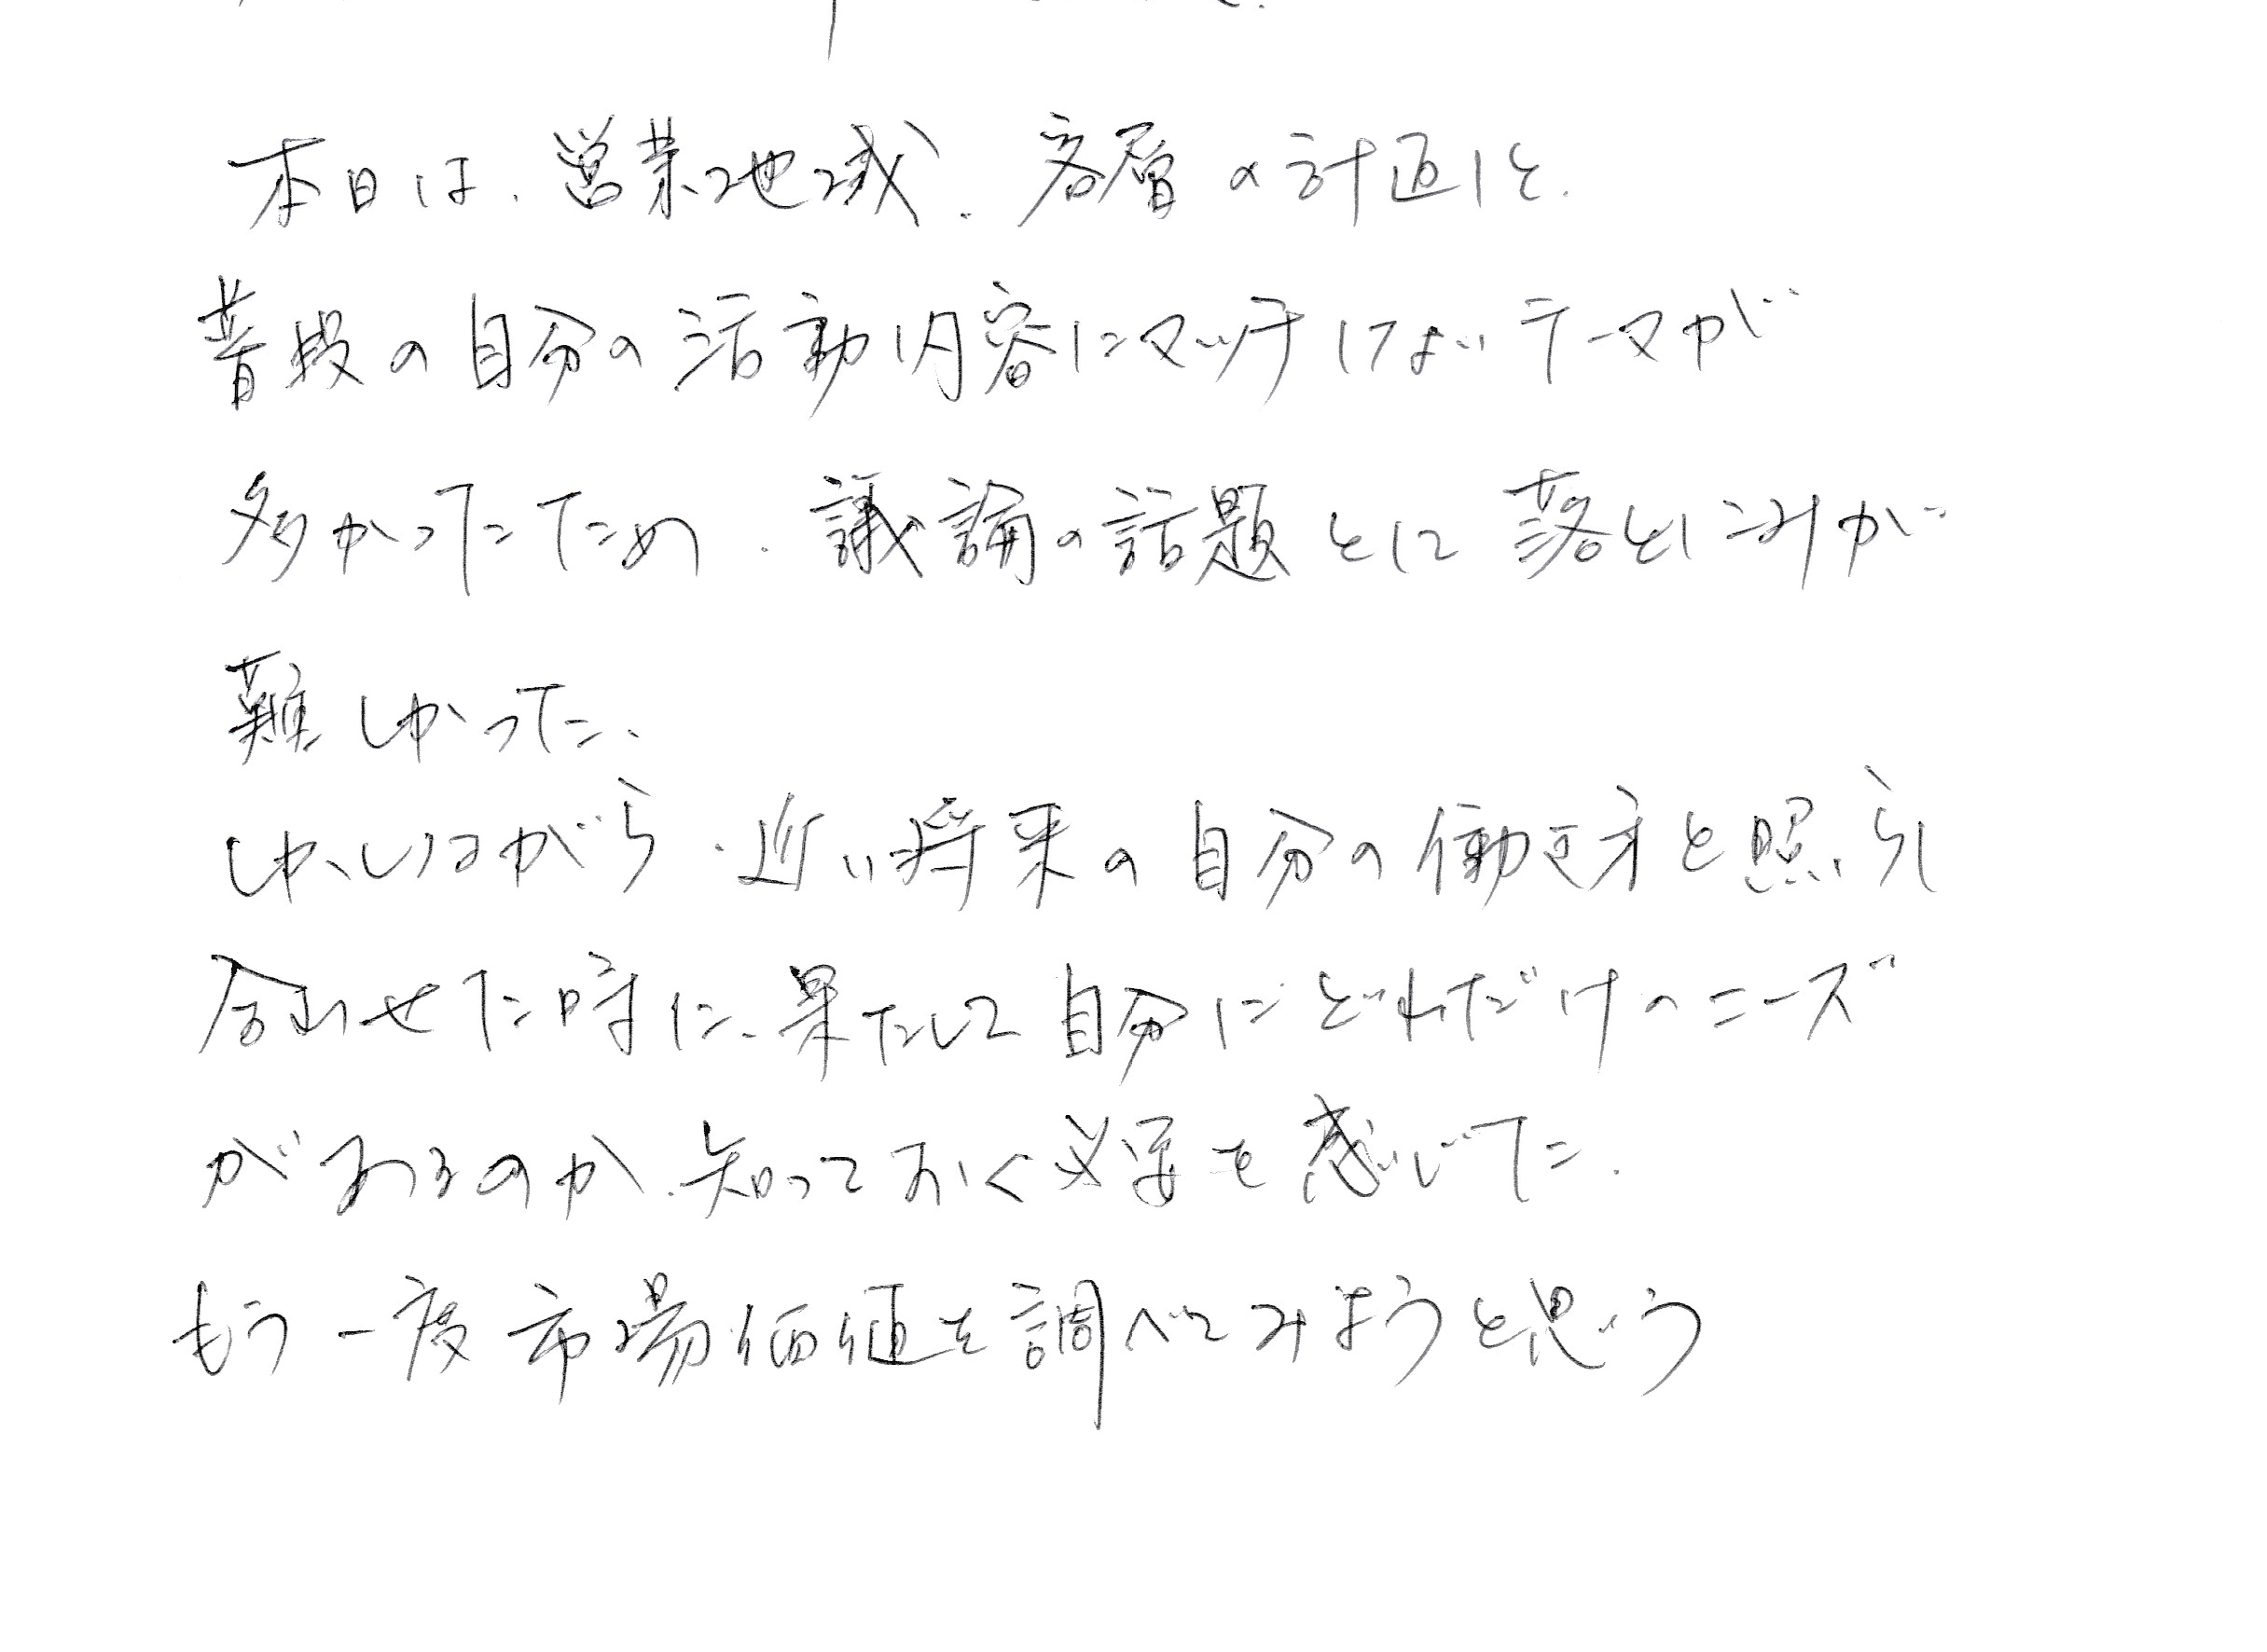 本日は、営業地域、客層の計画と、
普段の自分の活動内容にマッチしないテーマが
多かったため、議論の話題として落としこみが
難しかった、
しかしながら、近い将来の自分の働き方と照らし
合わせた時に、果たして自分にどれだけのニーズ
があるのか、知っておく必要を感じた、
もう一度市場価値を調べてみようと思う